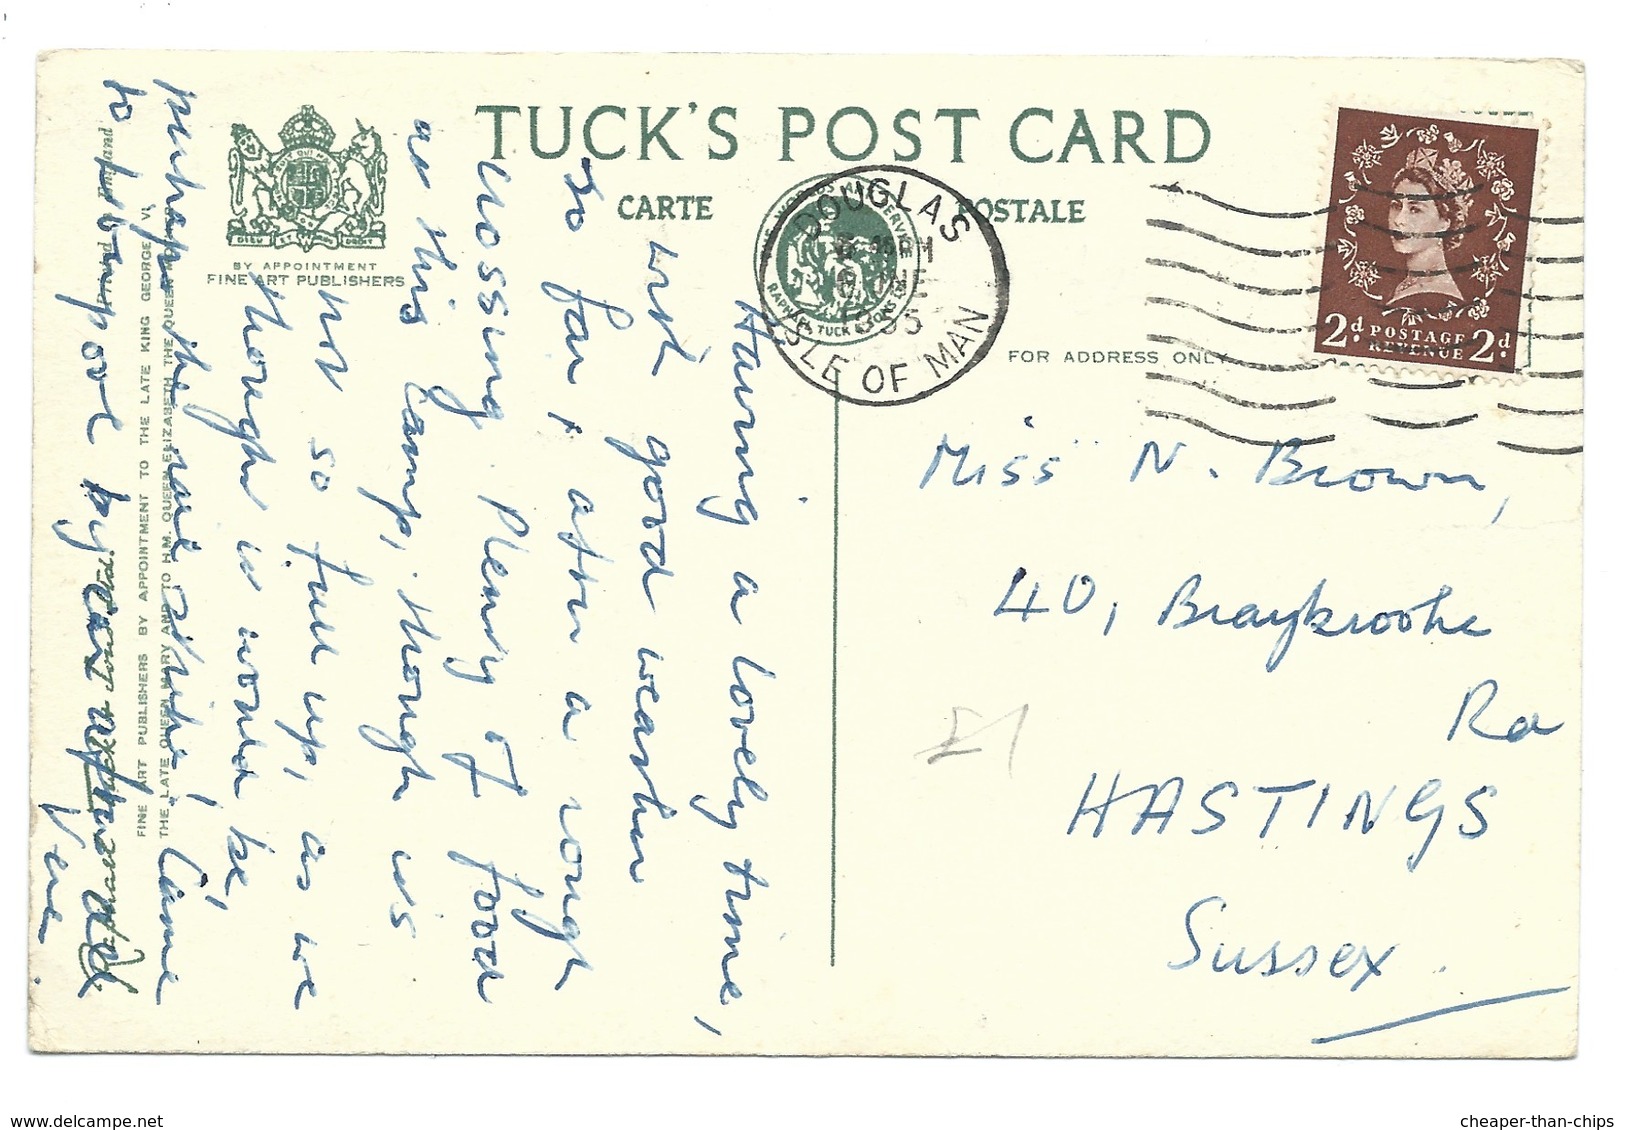 TUCK'S POST CARD
CARTE POSTALE
DIEU ET MON DROIT
BY APPOINTMENT
FINE ART PUBLISHERS
DOUGLAS
ISLE OF MAN
2d POSTAGE
REVENUE 2d
FOR ADDRESS ONLY
Having a lovely time,
with good weather
so far, after a rough
crossing. Plenty of food
at this camp, though it's
not so full up, as we
thought it would be,
perhaps the rail strike! Came
to L'pool by car,
Vera
Miss N. Brown,
40, Braybrooke
Rd
HASTINGS
Sussex.
£1
FINE ART PUBLISHERS BY APPOINTMENT TO THE LATE KING GEORGE VI,
THE LATE QUEEN MARY AND TO H.M. QUEEN ELIZABETH THE QUEEN
Raphael Tuck & Sons Ltd.
www.delcampe.net
cheaper-than-chips